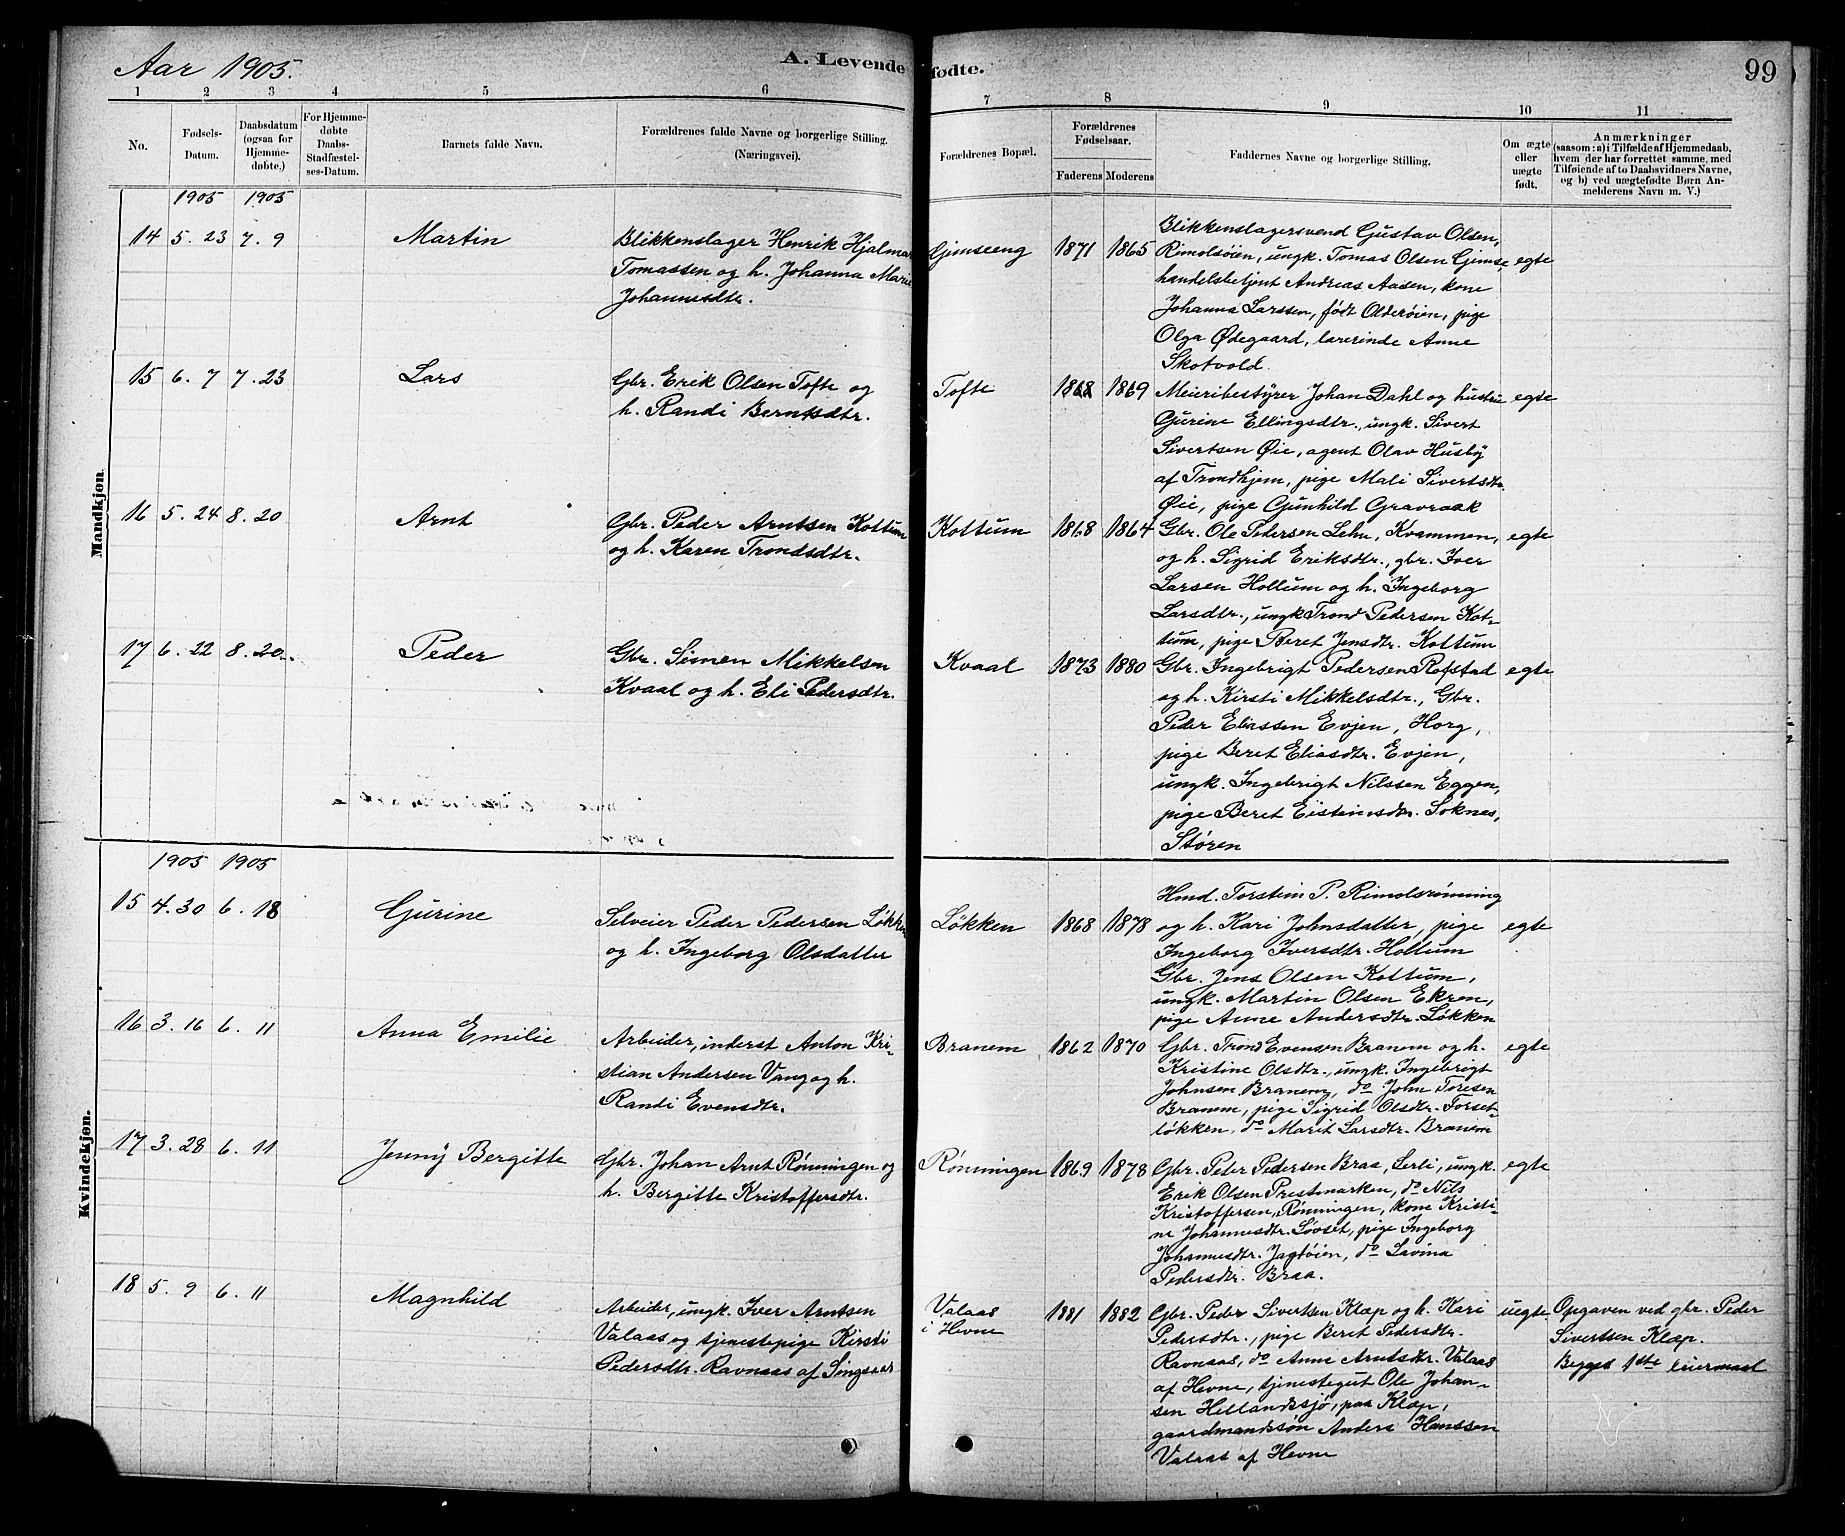 Aar 1905.
A. Levende fødte.
99
1 2 3 4 5 6 7 8 9 10 11
No.
Fødsels-
Datum.
Daabsdatum
(ogsaa for
Hjemme-
døbte.)
For Hjemme-
døbte
Daabs-
Stadfæstel-
ses-Datum.
Barnets fulde Navn.
Forældrenes fulde Navne og borgerlige Stilling.
(Næringsvei).
Forældrenes Bopæl.
Forældrenes
Fødselsaar.
Faderens Moderens
Faddernes Navne og borgerlige Stilling.
Om ægte
eller
uægte
født.
Anmærkninger
(saasom: a) i Tilfælde af Hjemmedaab,
hvem der har forrettet samme, med
Tilføiende af to Daabsvidners Navne,
og b) ved uægtefødte Børn An-
melderens Navn m. V.)
Mandkjøn.
1905 1905
14 5. 23 7. 9
Martin
Blikkenslager Henrik Hjalmar
Tomassen og h. Johanna Marie
Johannesdtr.
Gimseeng
1871 1865
Blikkenslagersvend Gustav Olsen,
Rimolsøien, ungk. Tomas Olsen Gimse,
handelsbetjent Andreas Aasen, kone
Johanna Larssen, født Olderøien, pige
Olga Ødegaard, lærerinde Anne
Skotvold.
egte
15 6. 7 7. 23
Lars
Gbr. Erik Olsen Tofte og
h. Randi Berntsdtr.
Tofte
1868 1869
Meieribestyrer Johan Dahl og hustru
Gurine Ellingsdtr., ungk. Sivert
Sivertsen Øie, agent Olav Husby
af Trondhjem, pige Mali Sivertsdtr.
Øie, pige Gunhild Gravraak
egte
16 5. 24 8. 20
Arnt
Gbr. Peder Arntsen Kottum
og h. Karen Trondsdtr.
Kottum
1868 1864
Gbr. Ole Pedersen Lehn, Kvammen,
og h. Sigrid Eriksdtr., gbr. Iver
Larsen Hollum og h. Ingeborg
Larsdtr., ungk Trond Pedersen Kot-
tum, pige Beret Jensdtr. Kottum
egte
17 6. 22 8. 20.
Peder
Gbr. Simen Mikkelsen
Kvaal og h. Eli Pedersdtr.
Kvaal
1873 1880
Gbr. Ingebrigt Pedersen Rofstad
og h. Kirsti Mikkelsdtr., Gbr.
Peder Eliassen Evjen, Horg,
pige Beret Eliasdtr. Evjen,
ungk. Ingebrigt Nilssen Eggen,
pige Beret Eisteinsdtr. Soknes,
Støren
egte
Kvindekjøn.
1905 1905
15 4. 30 6. 18
Gurine
Selveier Peder Pedersen Løkken
og h. Ingeborg Olsdatter
Løkken
1868 1878
Hmd. Torstein P. Rimolsrønning
og h. Kari Johnsdatter, pige
Ingeborg Iversdtr. Hollum
Gbr. Jens Olsen Kottum,
ungk. Martin Olsen Ekren,
pige Anne Andersdtr. Løkken
egte
16 3. 16 6. 11
Anna Emilie
Arbeider, inderst Anton Kri-
stian Andersen Vang og h.
Randi Evensdtr.
Branem
1862 1870
Gbr. Trond Evensen Branem og h.
Kristine Olsdtr., ungk. Ingebrigt
Johnsen Branem, do John Toresen
Branem, pige Sigrid Olsdtr. Forset-
løkken, do Marit Larsdtr. Branem
egte
17 3. 28 6. 11
Jenny Bergitte
Gbr. Johan Arnt Rønningen og
h. Bergitte Kristoffersdtr.
Rønningen
1869 1878
Gbr. Peter Pedersen Braa, Lerli, ungk.
Erik Olsen Prestmarken, do Nils
Kristoffersen, Rønningen, kone Kristi-
ne Johannesdtr. Løvset, pige Ingeborg
Johannesdtr. Jagtøien, do Lavina
Pedersdtr. Braa.
egte
18 5. 9 6. 11
Magnhild
Arbeider, ungk. Iver Arntsen
Valaas og tjenestepige Kirsti
Pedersdtr. Ravnaas af Singsaas
Valaas
i Hevne
1881 1882
Gbr. Peder Sivertsen Klæp og h. Kari
Pedersdtr., pige Beret Pedersdtr.
Ravnaas, do Anne Arntsdtr. Valaas
af Hevne, tjenestegut Ole Johan-
sen Hellandsjø, paa Klæp,
gaardmandssøn Anders Hanssen
Valaas af Hevne
uegte
Opgaven ved gbr. Peder
Sivertsen Klæp.
Begges 1ste leiermaal